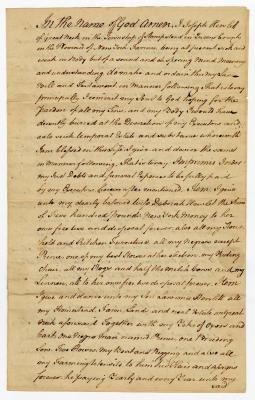 In the Name of God Amen. I Joseph Hewlet
of Great Neck in the Township of Hempstead in Queens County
in the Province of New York Farmer being at present sick and
weak in body but of a sound and disposing Mind Memory
and understanding do make and ordain this my Last
Will and Testament in Manner following That is to say
principally I commend my Soul to God hoping for the
Pardon of all my Sins and my Body I would have
decently buried at the discretion of my Executors and
as to such temporal Estate and substance wherewith
I am blessed in this Life I give and devise the same
in Manner following That is to say Imprimis I order
my Just Debts and funeral Expences to be fully paid
by my Executors hereinafter mentioned Item I give
unto my dearly beloved Wife Deborah Hewlet the Sum
of Five hundred pounds New York Money to her
own free use and disposal forever also all my House
hold and Kitchen Furniture all my Negroes except
Prince one of my best Horses at her election my Riding
Chair all my Hogs and half the Milch Cows and my
Linnen all to her own free use disposal forever Item
I give and devise unto my Son
my Homestead Farm Lands and real Estate in Great
Neck aforesaid Together with my Yoke of Oxen and
Cart one Negro Man named Prince one Breeding
Cow Two Plows my Boat and Rigging and also all
my Farming Utensils to him his Heirs and assigns
forever he paying Yearly and every Year unto my
said